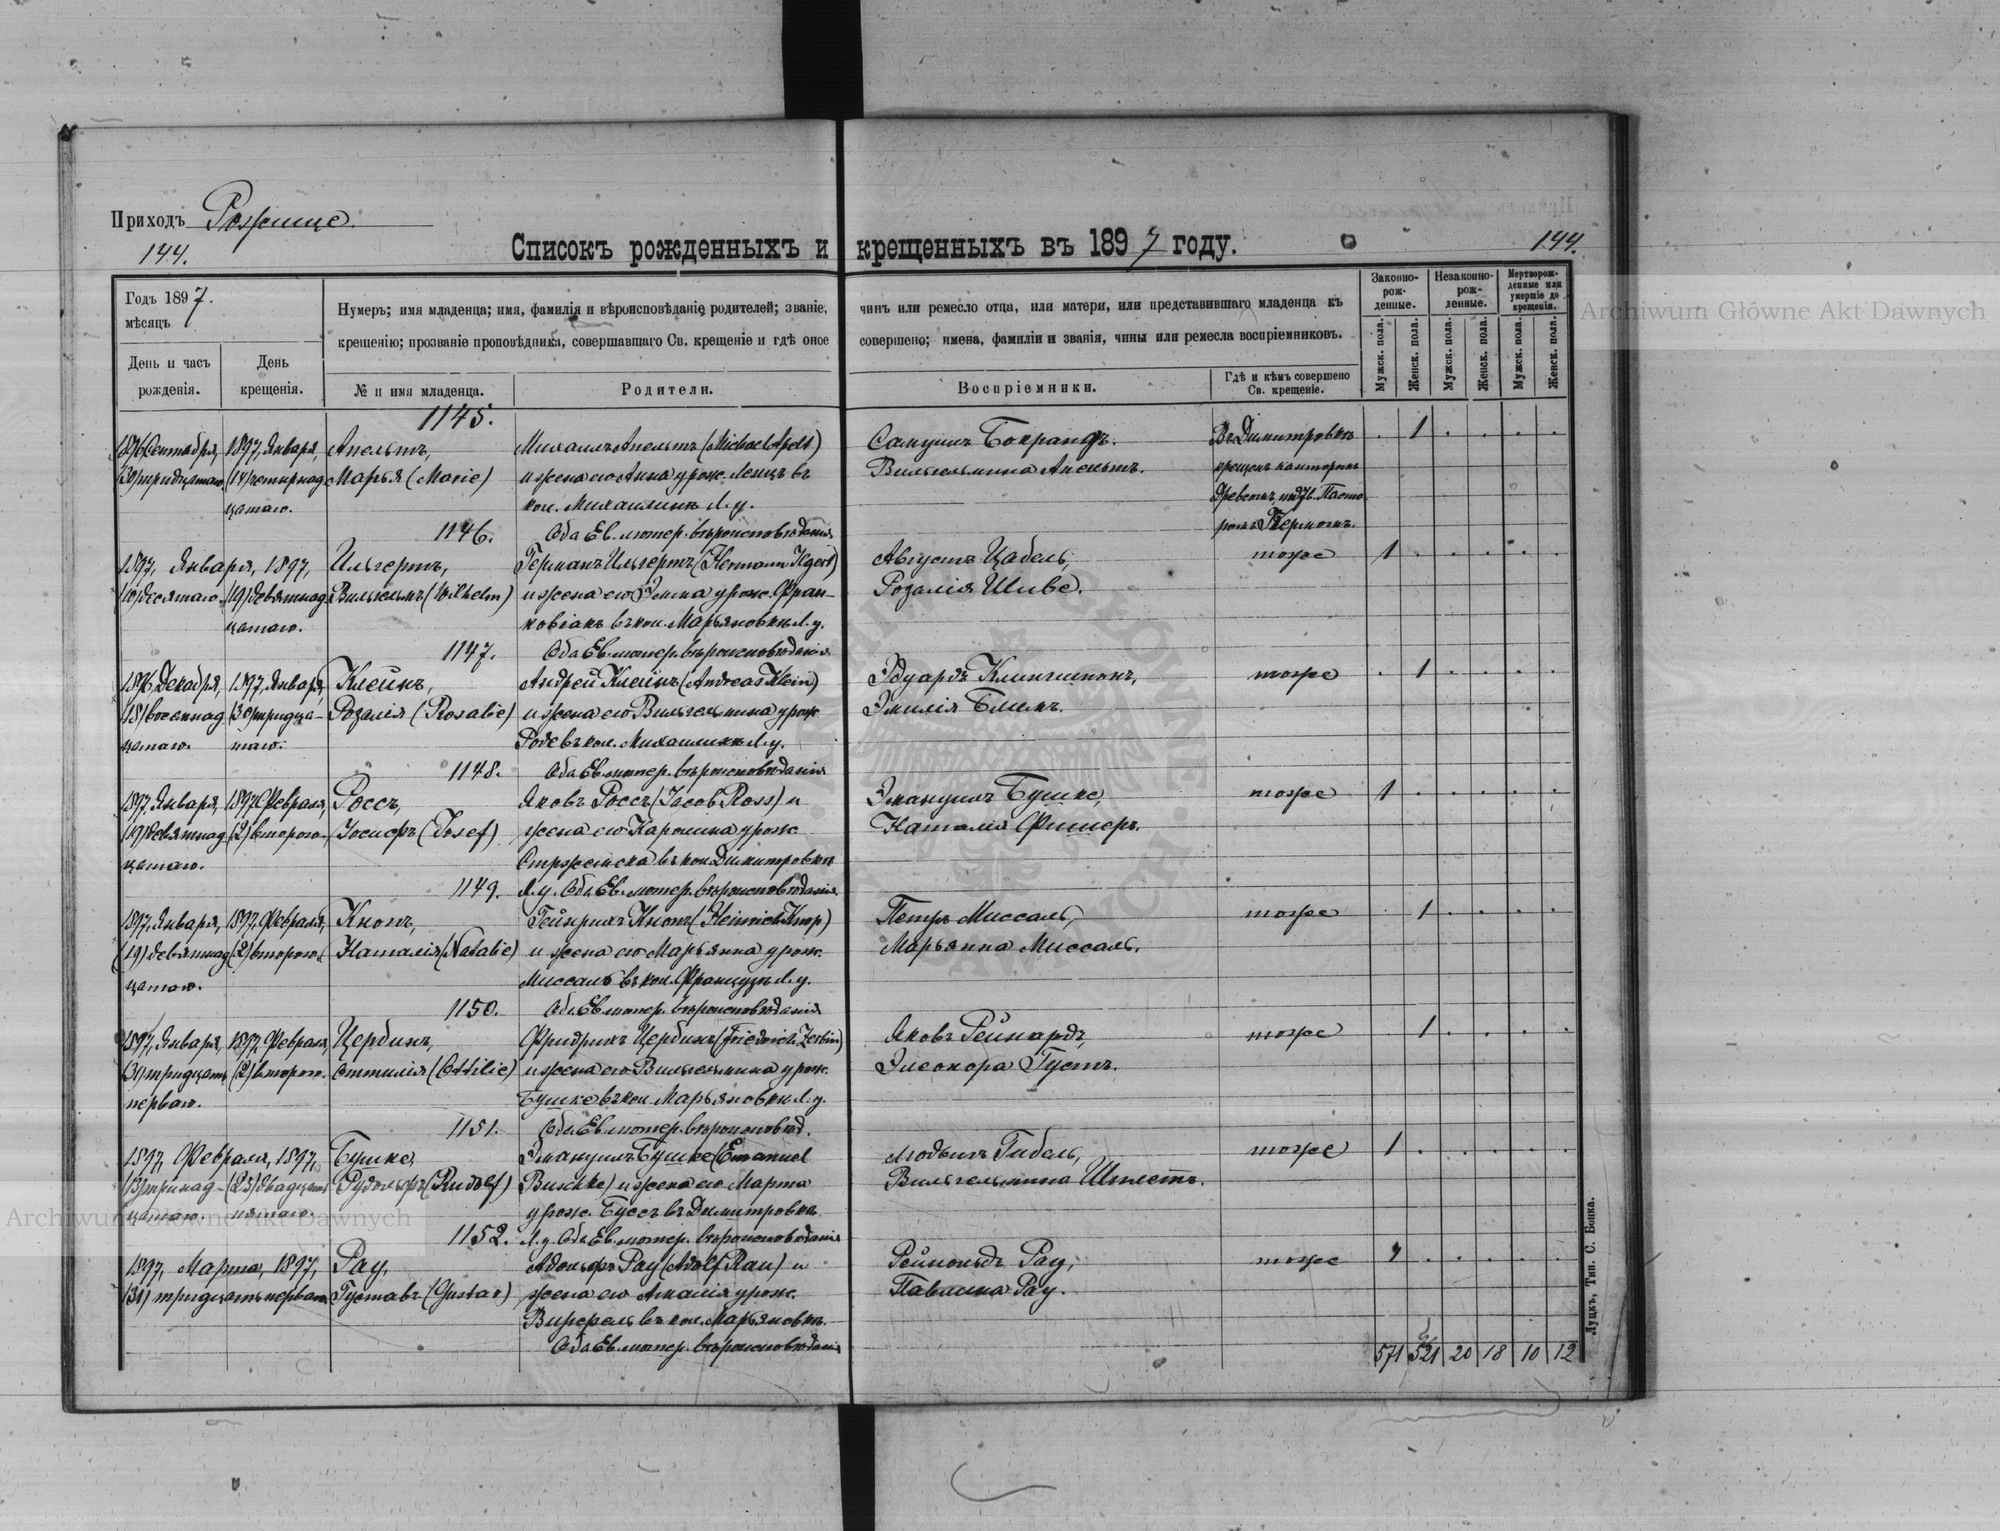 Приходъ Рожище.
144.
144.
Списокъ рожденныхъ и крещенныхъ въ 1897 году.
Годъ 1897.
мѣсяцъ
День и часъ рожденія.
День крещенія.
Нумеръ; имя младенца; имя, фамилія и вѣроисповѣданіе родителей; званіе, чинъ или ремесло отца, или матери, или представившаго младенца къ
крещенію; прозваніе проповѣдника, совершавшаго Св. крещеніе и гдѣ оное совершено; имена, фамиліи и званія, чины или ремесла воспріемниковъ.
№ и имя младенца.
Родители.
Воспріемники.
Гдѣ и кѣмъ совершено Св. крещеніе.
Законно-рож-денные.
Незаконно-рож-денные.
Мертворож-денные или умершіе до крещенія.
Мужск. пола.
Женск. пола.
Мужск. пола.
Женск. пола.
Мужск. пола.
Женск. пола.
1145.
1896 Сентября, 1897, Января, Апельтъ, Михаилъ Апельтъ (Michael Apelt) Вильгельмина Апельтъ. Въ Димитровкѣ 1
(30) тридцатаго. (14) четырнад Марья (Marie) и жена его Анна урож. Ленцъ въ крещенъ канторомъ
цатаго. кол. Михаилинъ Л. у.
1146. Оба Ев. лютер. вѣроисповѣданія
1897, Января, 1897, Ильгертъ, Германъ Ильгертъ (Hermann Ilgert) Августъ Цабель, тоже 1
(10) десятаго. (19) девятнад Вильгельмъ (Wilhelm) и жена его Эмма урож. Фран- Розалія Шиве.
цатаго. ковіакъ въ кол. Марьяновкѣ Л. у.
1147. Оба Ев. лютер. вѣроисповѣданія
1896, Декабря, 1897, Января, Клейнъ, Андрей Клейнъ (Andreas Klein) Эдуардъ тоже 1
(18) восемнад (30) тридца- Розалія (Rosalie) и жена его Вильгельмина урож. Эмилія
цатаго. таго. Роде въ кол. Михаилинъ Л. у.
1148. Оба Ев. лютер. вѣроисповѣданія
1897, Января, 1897, Февраля, Россъ, Яковъ Россъ (Jacob Ross) и Эмануилъ Бушке, тоже 1
(19) девятнад (2) второго. Іосифъ (Josef) жена его Каролина урож. Наталія Фишеръ.
цатаго. въ кол. Димитровкѣ
1149. Л. у. Оба Ев. лютер. вѣроисповѣданія
1897, Января, 1897, Февраля, Кнопъ, Гейнрихъ Кнопъ (Heinrich Knop) Петръ Миссаль, тоже 1
(19) девятнад (2) второго. Наталія (Natalie) и жена его Марьянна урож. Марьянна Миссаль.
цатаго. Миссаль въ кол. Французъ Л. у.
1150. Оба Ев. лютер. вѣроисповѣданія
1897, Января, 1897, Февраля, Цербинъ, Фридрихъ Цербинъ (Friedrich Zerbin) Яковъ Рейнардъ, тоже 1
(31) тридцать (2) второго. Оттилія (Ottilie) и жена его Вильгельмина урож. Элеонора Густъ.
перваго. Бушке въ кол. Марьяновкѣ Л. у.
1151. Оба Ев. лютер. вѣроисповѣд.
1897, Февраля, 1897, Бушке, Эмануилъ Бушке (Emanuel Людвигъ Гибель, тоже 1
(13) тринад- (25) двадцать Рудольфъ (Rudolf) Buschke) и жена его Марта Вильгельмина
цатаго. пятаго. урож. Буссъ въ Димитровкѣ
1152. Л. у. Оба Ев. лютер. вѣроисповѣданія
1897, Марта, 1897, Рау, Адольфъ Рау (Adolf Rau) и Рейнольдъ Рау, тоже 1
(31) тридцать перваго Густавъ (Gustav) жена его Амалія урож. Павлина Рау.
въ кол. Марьяновкѣ.
Оба Ев. лютер. вѣроисповѣданія
571 521 20 18 10 12
Луцкъ, Тип. С. Бонка.
Archiwum Główne Akt Dawnych
Archiwum Główne Akt Dawnych